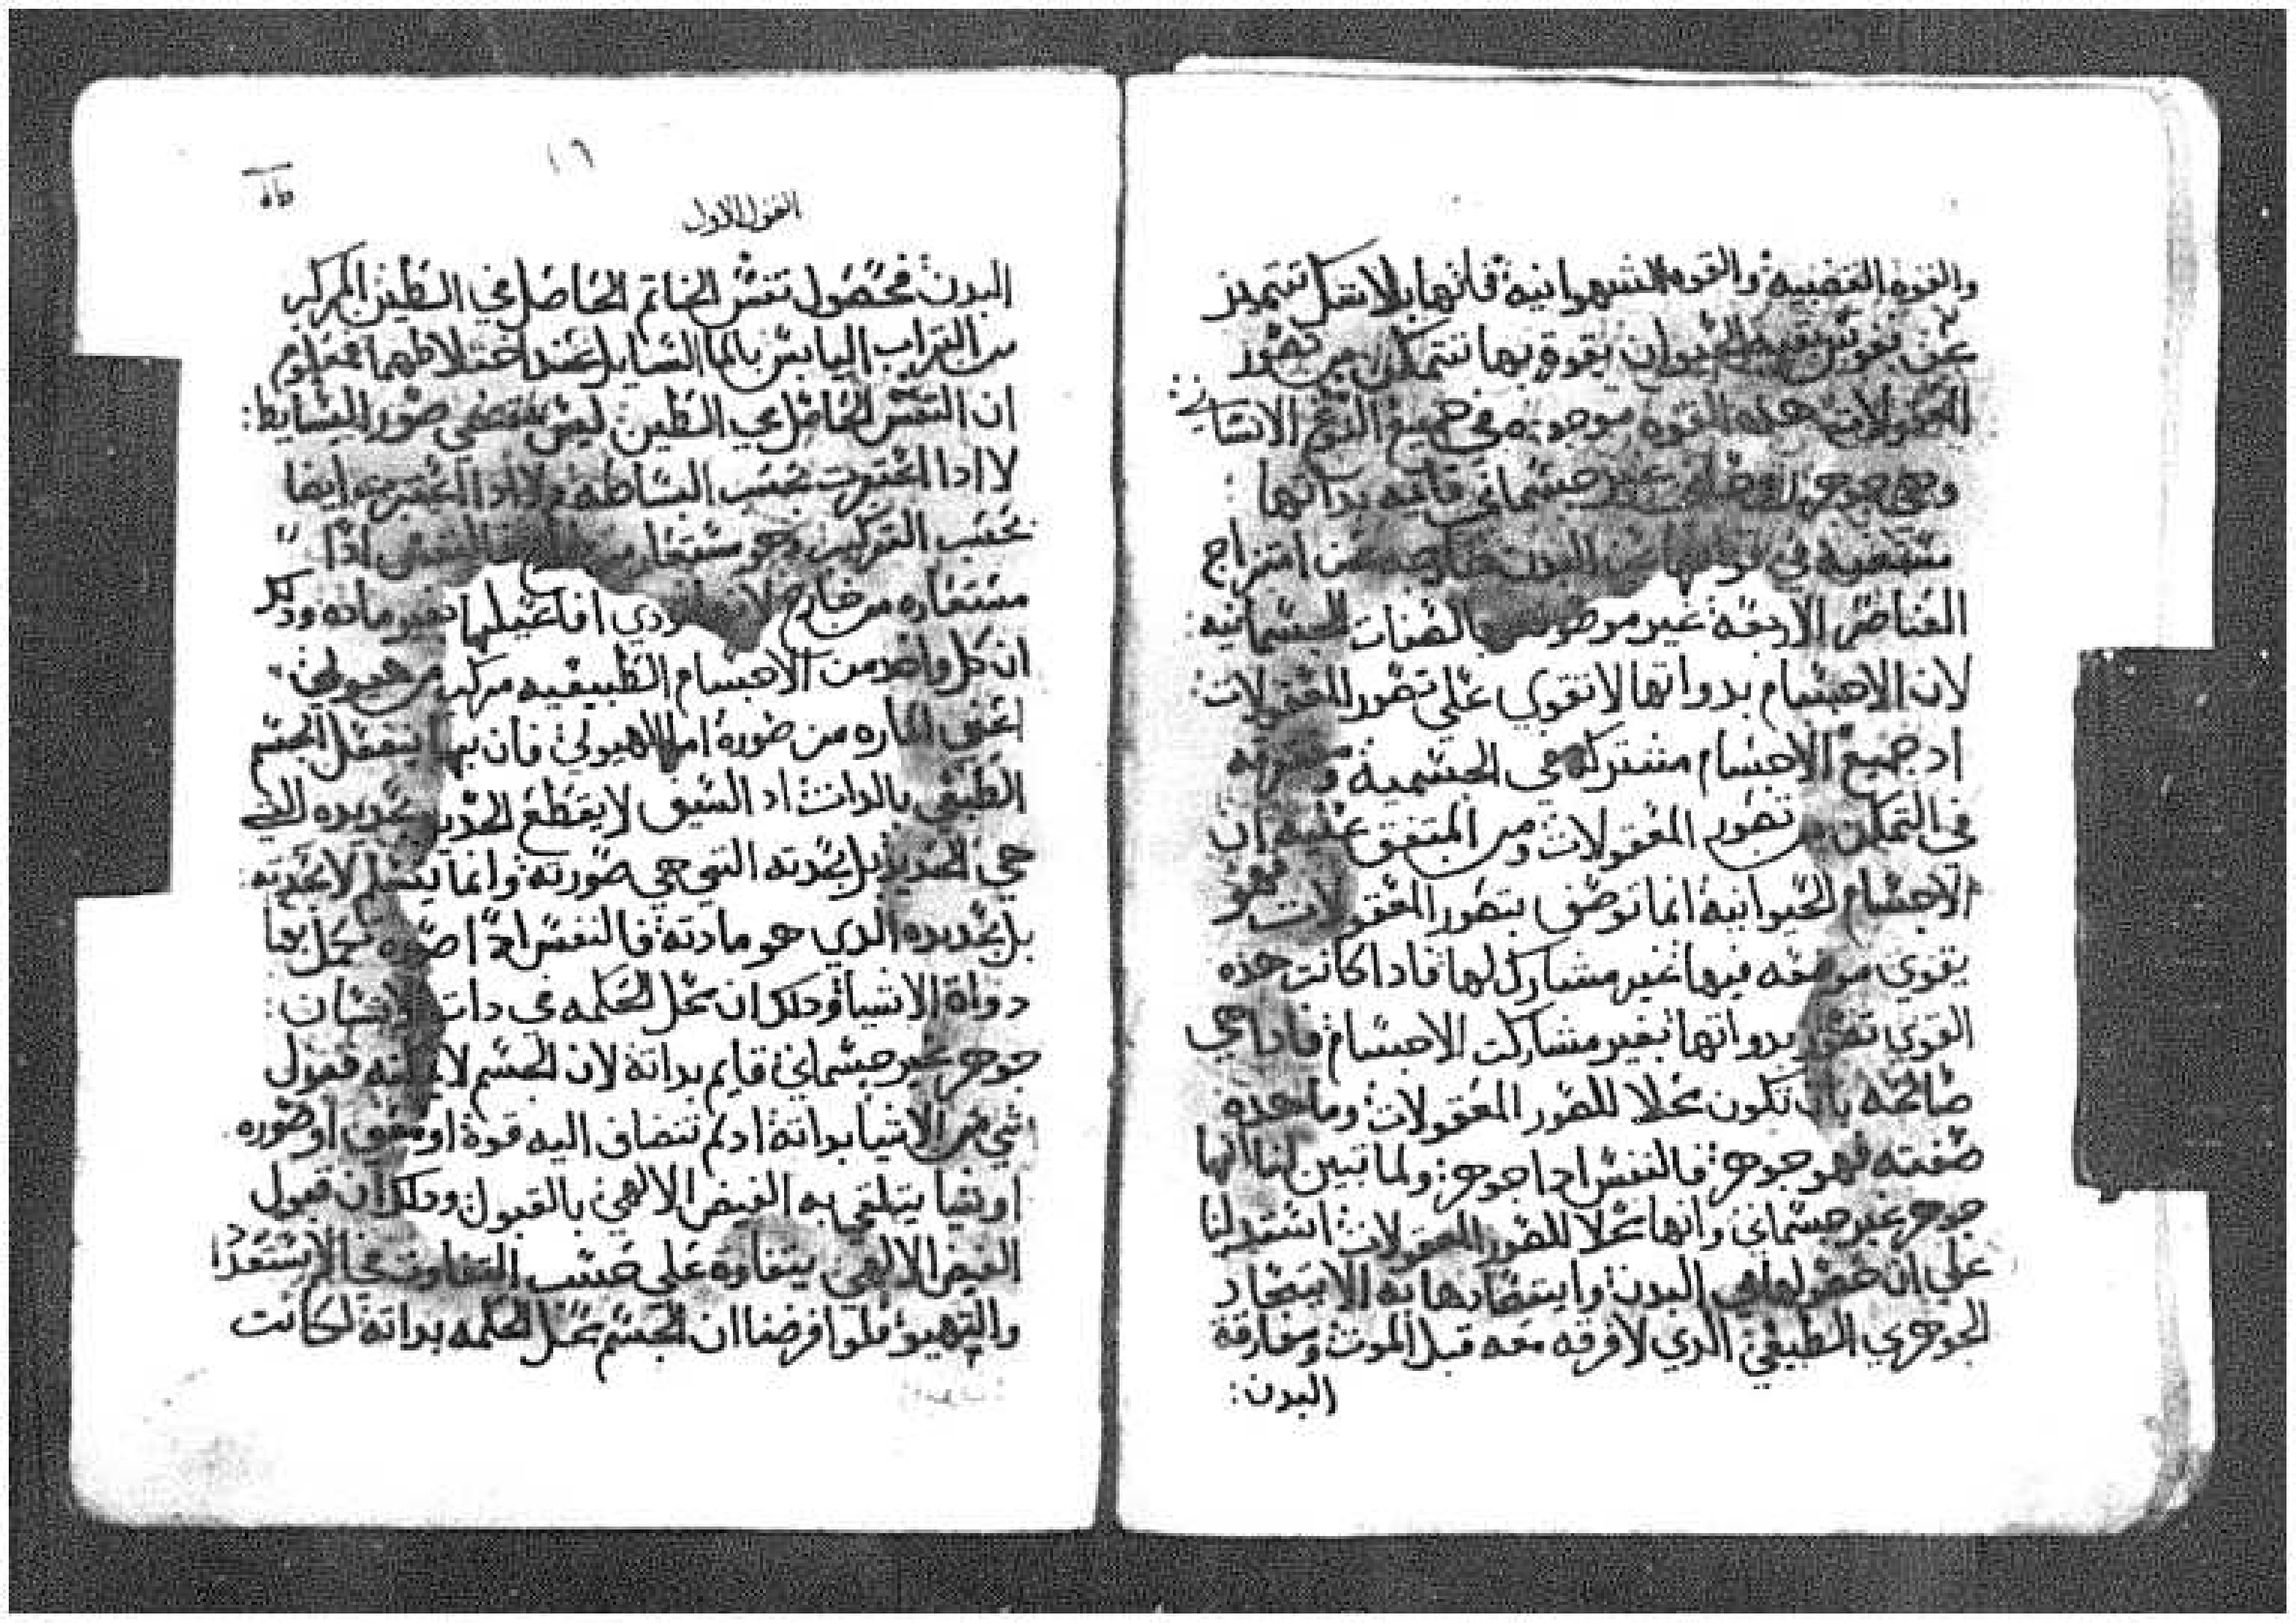 والقوة الغضبية والقوه الشهوانية فانها بلا شك تتميز
عن نفوس الحيوان بقوة بها تتمكن من تصور
المعقولات هده القوه موجوده في جميع النوع الانساني:
وهي جوهر غير جسماني قايمه بداتها
البدن امتزاج
العناصر الاربعة غير موصوفه بالصفات الجسمانيه:
لان الاجسام بدواتها لا تقوي علي تصور المعقولات
اد جميع الاجسام مشتركة في الجسمية
في التمكن من تصور المعقولات ومن المتفق عليه ان
الاجسام الحيوانية انما توصف بتصور المعقولات
بقوي فيها غير مشارك لها فادا كانت هذه
القوي تتصور بدواتها بغير مشاركت الاجسام فاداهي
صالحه بان تكون محلا للصور المعقولات وما هده
صفته فهو جوهر: فالنفس ادا جوهر: ولما تبين لنا انها
جوهر غير جسماني وانها محلا للصور المعقولات استدلينا
علي ان حصولها في البدن وايتحادها به الايتحاد
الجوهري الطبيعي الدي لا فرقه معه قبل الموت ومفارقة
البدن:
١٦
القول الاول
البدن فحصول نقش الخاتم الحاصل في الطين المركب
من التراب اليابس بالما السايل عند اختلاطهما فمعلوم
ان النقش الحاصل في الطين ليس صور البسايط:
لا ادا اعتبرت بحسب البساطه ولا ادا اعتبرت ايضا
بحسب التركيب وهو مستعار النفس اذًا
مستعاره من خارج افاعيلها بغير ماده ودلك
ان كل واحد من الاجسام الطبيعيه مركب من هيولي
اعني الماره من صورة اما الهيولي فان بها ينفعل الجسم
الطبيعي بالدات اد السيف لا يقطع الحديد بحديده التي
هي الحديد بل بحدته التي هي صورته وانما ينفعل لا بحدته:
بل بحديده الدي هو مادته فالنفس ادًا صوره تكمل بها
دواة الاشيا ودلك ان محل الحكمه في دات الانسان:
جوهر غير جسماني قايم بداتة لان الجسم لا يمكنه قبول
شي من الاشيا بداتة ادلم تنضاف اليه قوة او معني او صوره
او شيا يتلقي به الفيض الالاهي بالقبول ودلك ان قبول
الفيض الالاهي يتفاوة علي حسب التفاوت في الاستعدا
والتهيو فلو افرضنا ان الجسم محل الحكمه بداتة لكانت